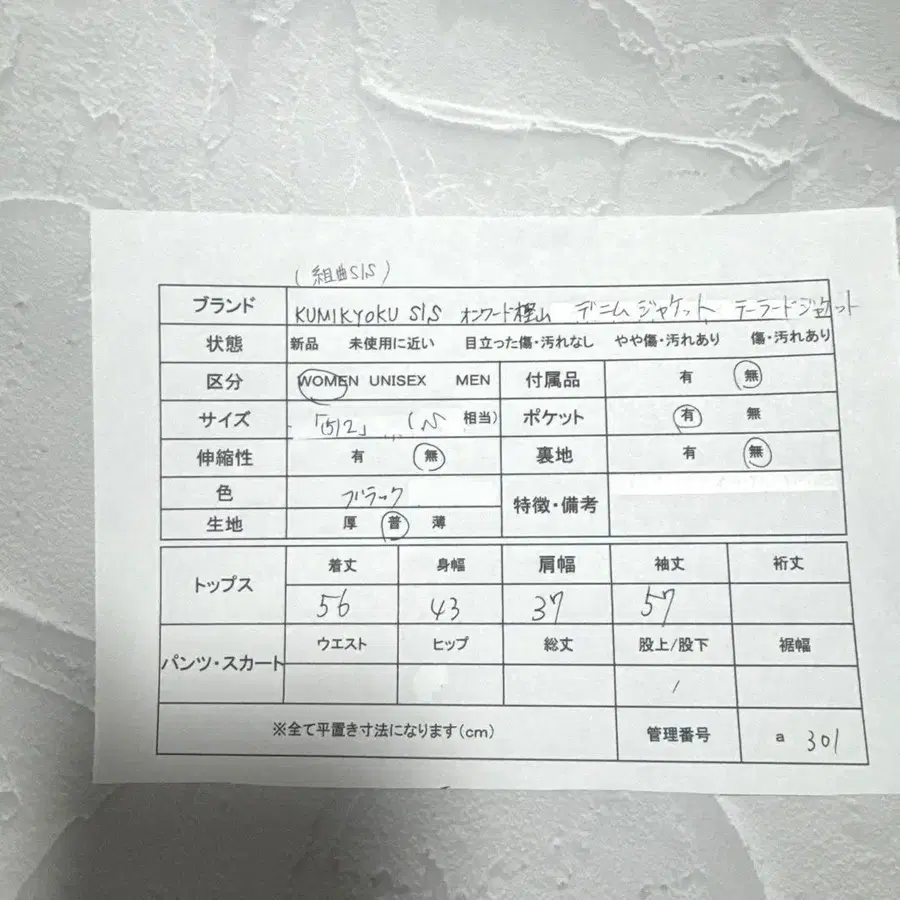 (組曲SIS)
ブランド KUMIKYOKU SIS オンワード樫山 デニムジャケット テーラードジャケット
状態 新品 未使用に近い 目立った傷・汚れなし やや傷・汚れあり 傷・汚れあり
区分 WOMEN UNISEX MEN 付属品 有 無
サイズ 相当) ポケット 有 無
伸縮性 有 無 裏地 有 無
色 ブラック 特徴・備考
生地 厚 普 薄
トップス 着丈 身幅 肩幅 袖丈 裄丈
56 43 37 57
パンツ・スカート ウエスト ヒップ 総丈 股上/股下 裾幅
/
※全て平置き寸法になります(cm) 管理番号 a 301